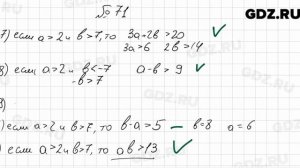 GDZ.RU
№ 71
7) если a>2 и b>7, то 3a+2b>20
3a>6 2b>14
8) если a>2 и b<-7 a-b>9
-b>7
) если a>2 и b>7, то b-a>5 — b=8 a=6
) если a>2 и b>7, то ab>13
GDZ.RU